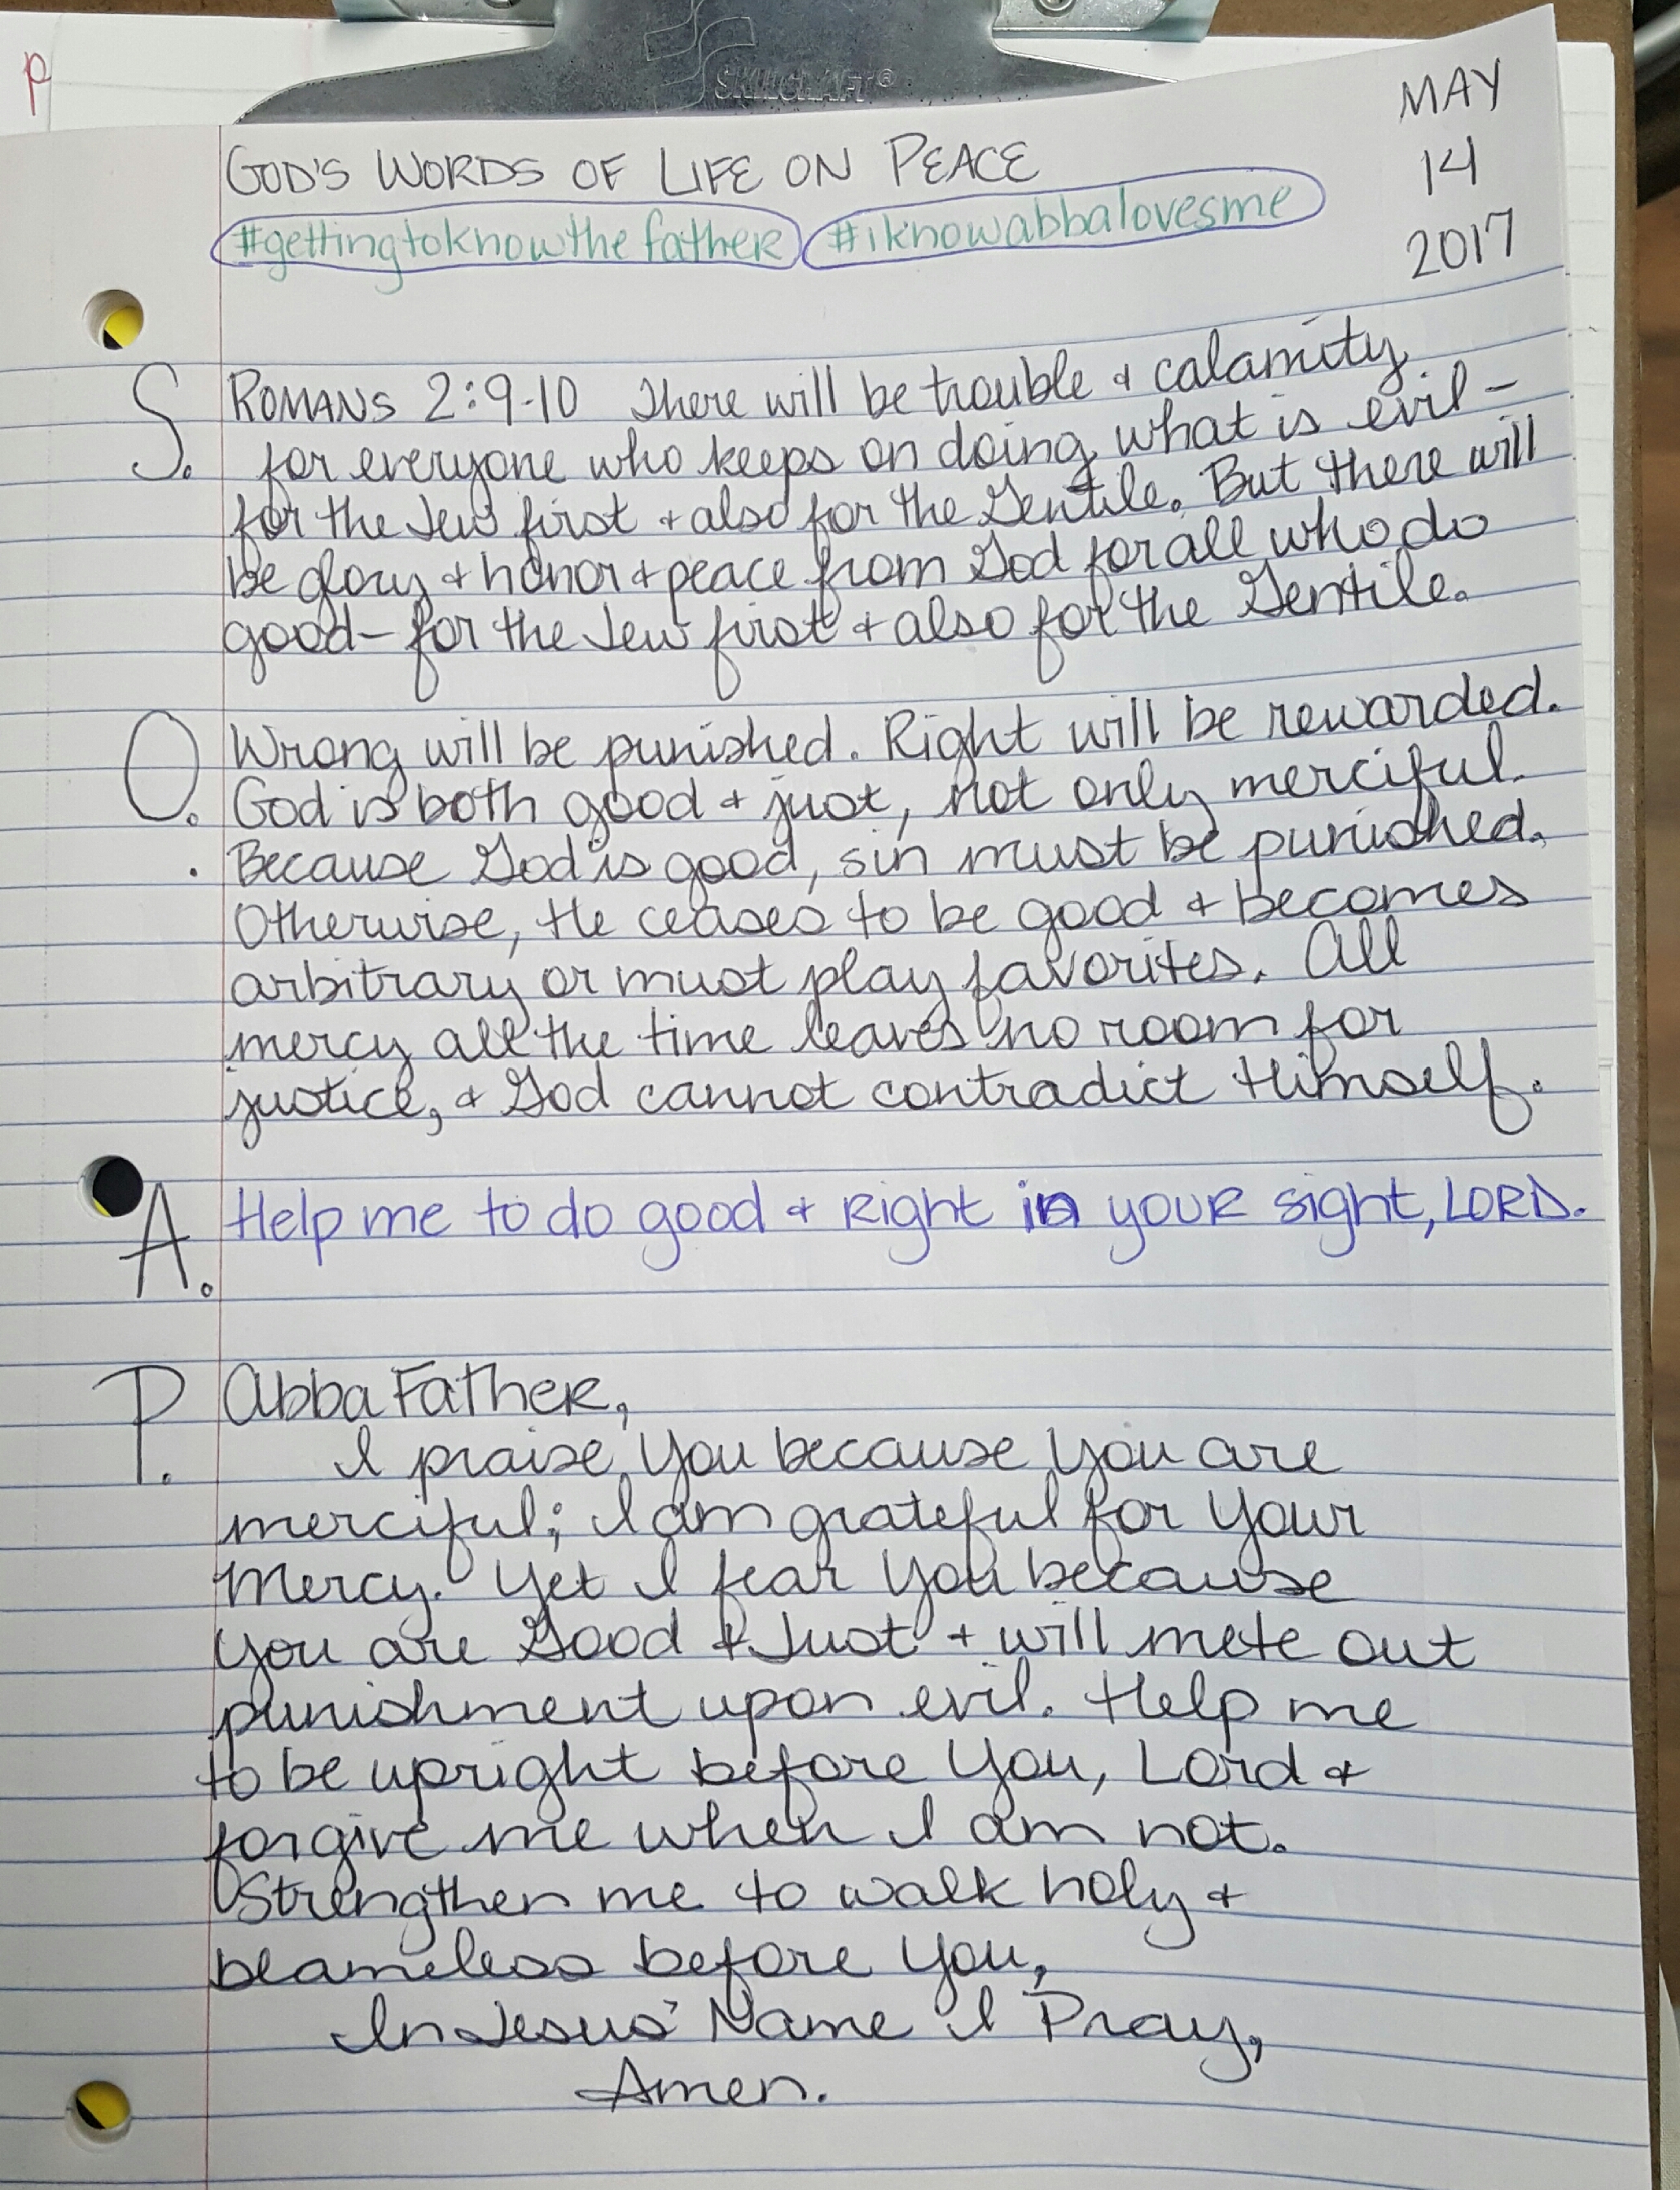 SKILCRAFT®
p
MAY
14
2017
GOD'S WORDS OF LIFE ON PEACE
#gettingtoknowthefather #iknowabbalovesme
S. ROMANS 2:9-10 There will be trouble & calamity
for everyone who keeps on doing what is evil-
for the Jew first & also for the Gentile. But there will
be glory & honor & peace from God for all who do
good- for the Jew first & also for the Gentile.
O. Wrong will be punished. Right will be rewarded.
God is both good & just, not only merciful.
Because God is good, sin must be punished.
Otherwise, He ceases to be good & becomes
arbitrary or must play favorites. All
mercy all the time leaves no room for
justice, & God cannot contradict Himself.
A. Help me to do good & Right in your sight, LORD.
P. Abba Father,
I praise You because You are
merciful; I am grateful for Your
Mercy. Yet I fear You because
You are Good & Just & will mete out
punishment upon evil. Help me
to be upright before You, Lord &
forgive me when I am not.
Strengthen me to walk holy &
blameless before You,
In Jesus' Name I Pray,
Amen.